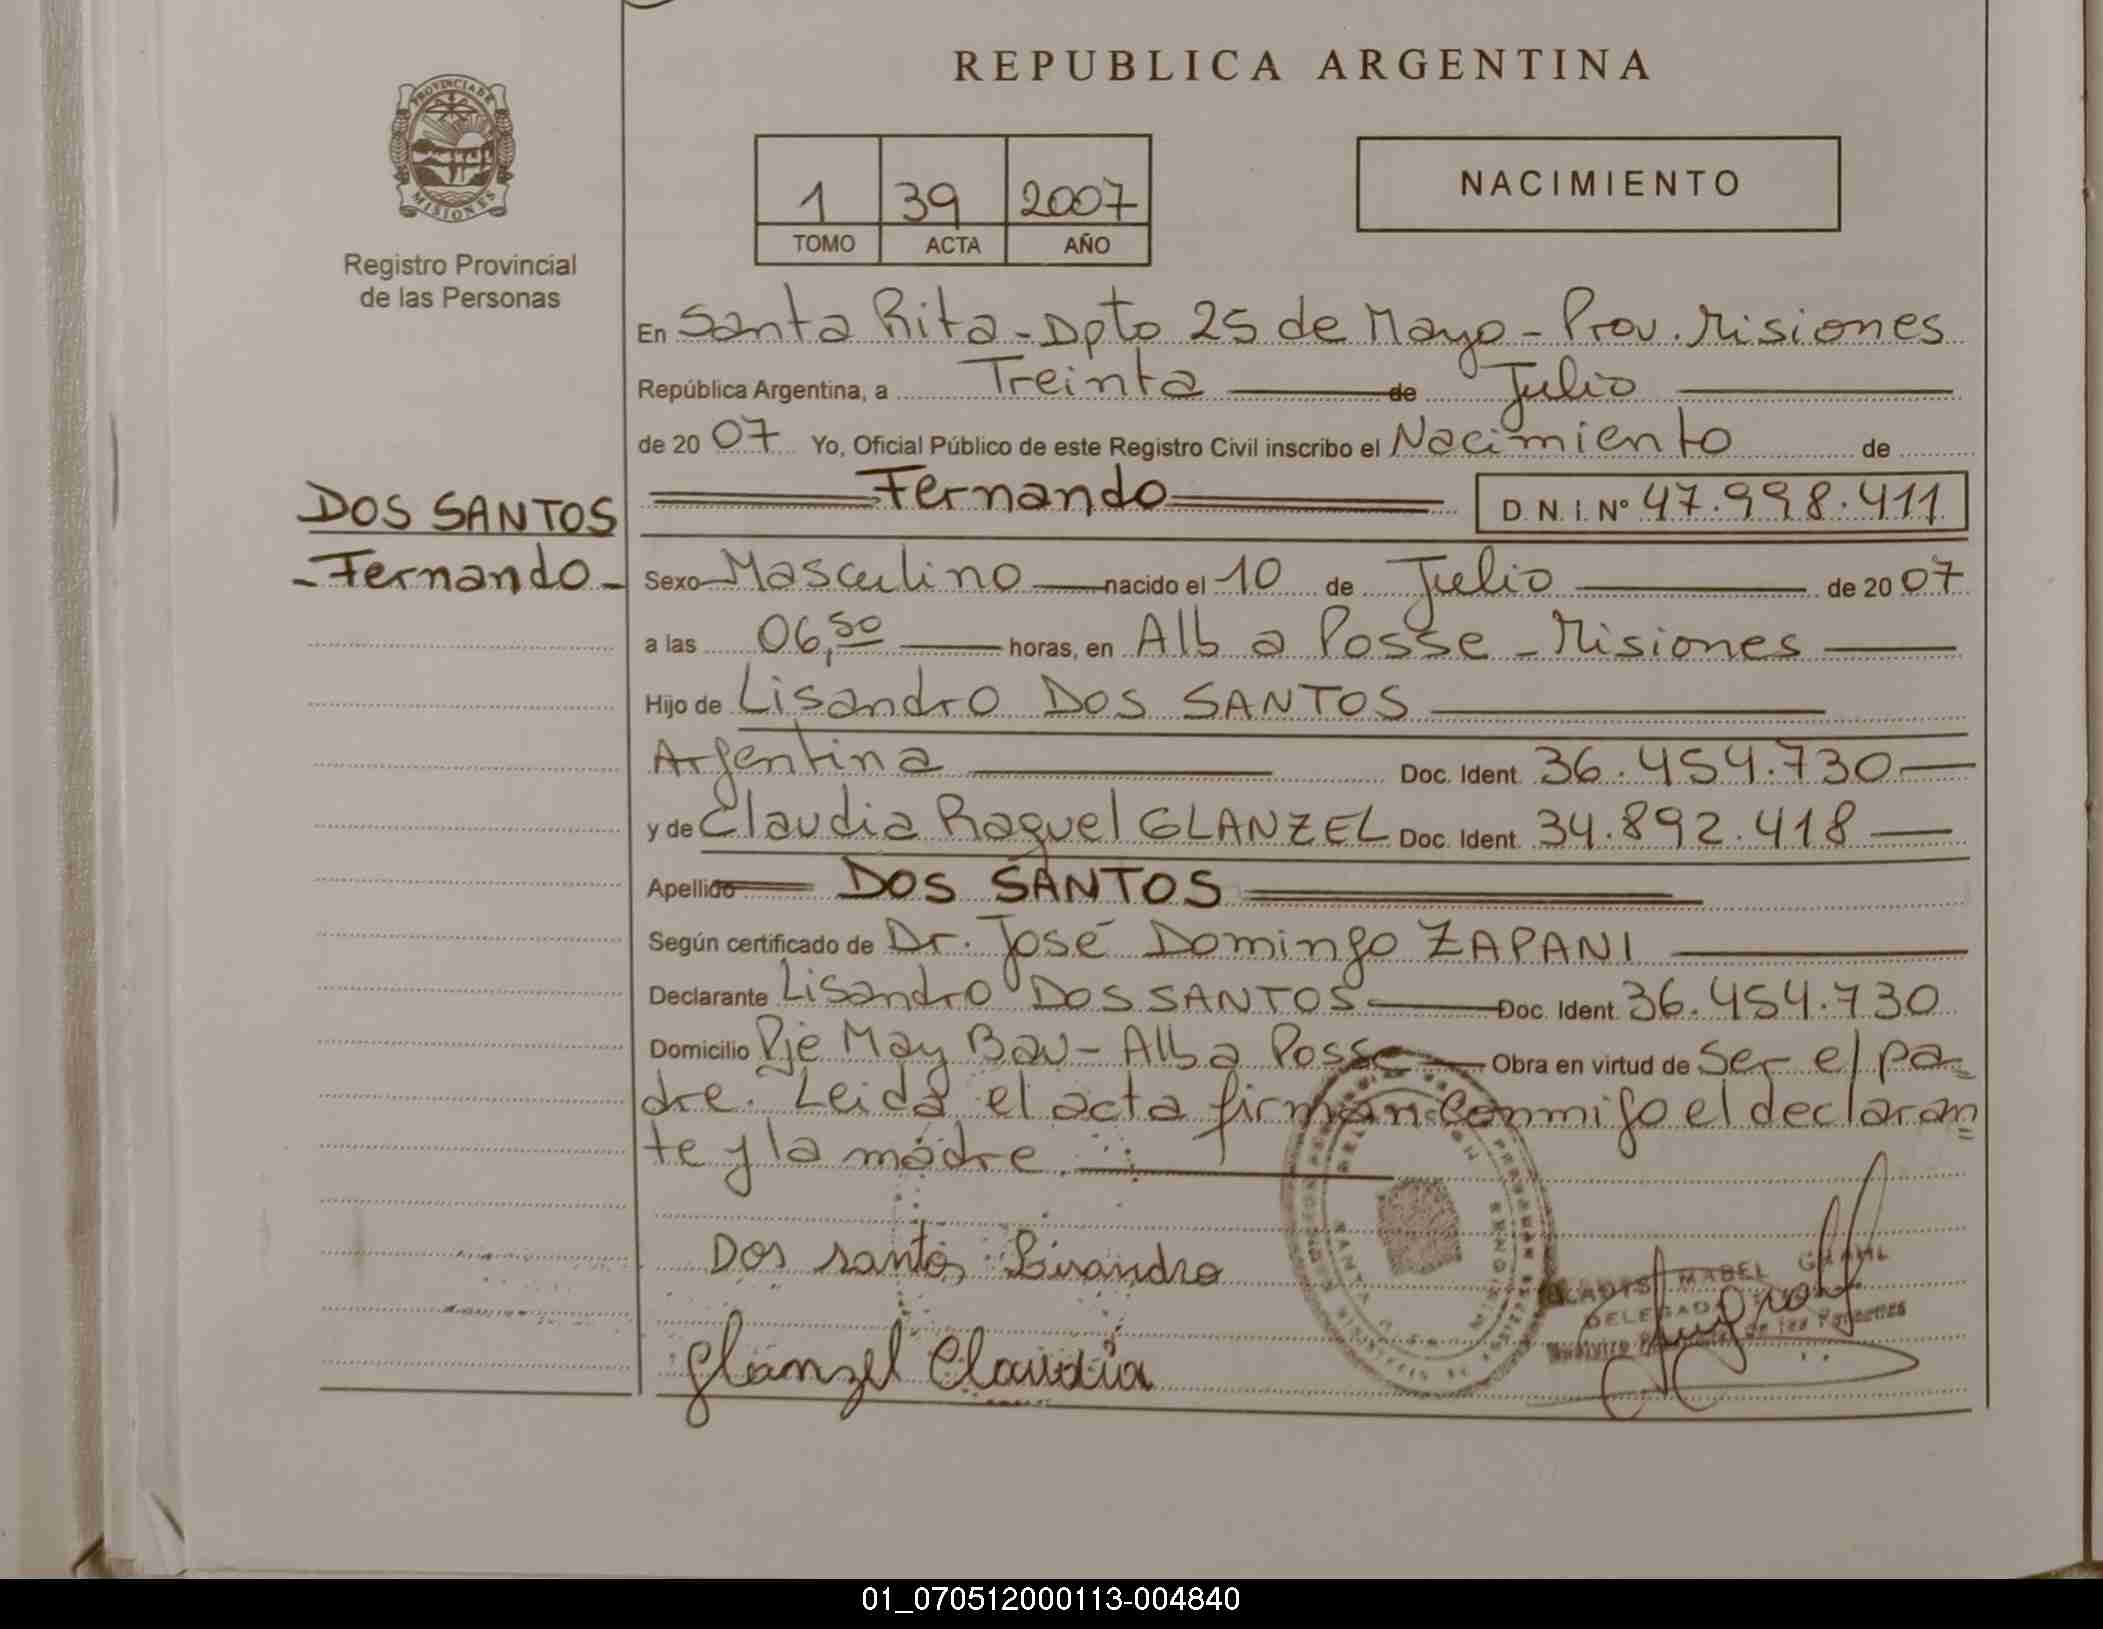 REPUBLICA ARGENTINA
PROVINCIA DE
MISIONES
Registro Provincial
de las Personas
1 39 2007
TOMO ACTA AÑO
NACIMIENTO
En Santa Rita - Dpto 25 de Mayo - Prov. Misiones
República Argentina, a Treinta de Julio
de 20 07 Yo, Oficial Público de este Registro Civil inscribo el Nacimiento de
Fernando D.N.I. Nº 47.998.411
DOS SANTOS
- Fernando -
Sexo Masculino nacido el 10 de Julio de 20 07
a las 06,50 horas, en Alba Posse - Misiones
Hijo de Lisandro DOS SANTOS
Argentina Doc. Ident. 36.454.730
y de Claudia Raquel GLANZEL Doc. Ident. 34.892.418
Apellido DOS SANTOS
Según certificado de Dr. José Domingo ZAPANI
Declarante Lisandro DOS SANTOS Doc. Ident. 36.454.730
Domicilio Pje May Bau - Alba Posse Obra en virtud de Ser el pa=
dre. Leida el acta firman conmigo el declaran=
te y la madre.
Dos santos Lisandro
GLADYS MABEL
DELEGADA
de las Personas
SANTA RITA
MISIONES
Glanzel Claudia
01_070512000113-004840